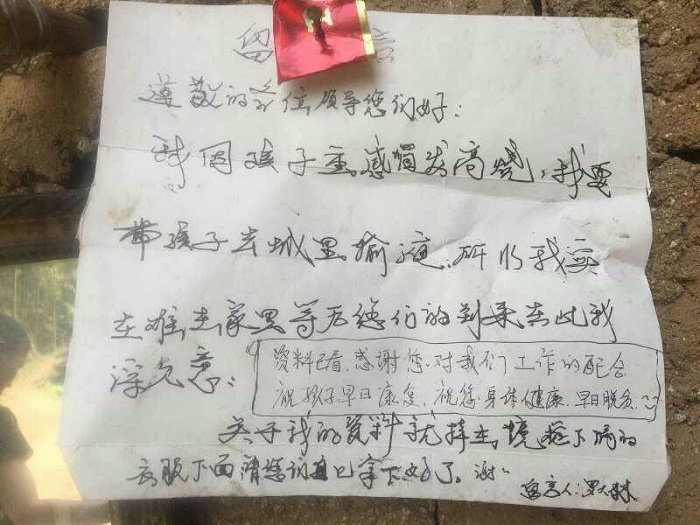 留言
尊敬的各位领导您们好：
我因孩子重感冒发高烧，我要
带孩子去城里输液，所以我实
在难在家里等候您们的到来在此我
深欠意：
资料已看，感谢您对我们工作的配合
祝孩子早日康复、祝您身体健康、早日脱贫。
关于我的资料就挂在境框下面的
衣服下面请您们自己拿下好了。谢
留言人：罗